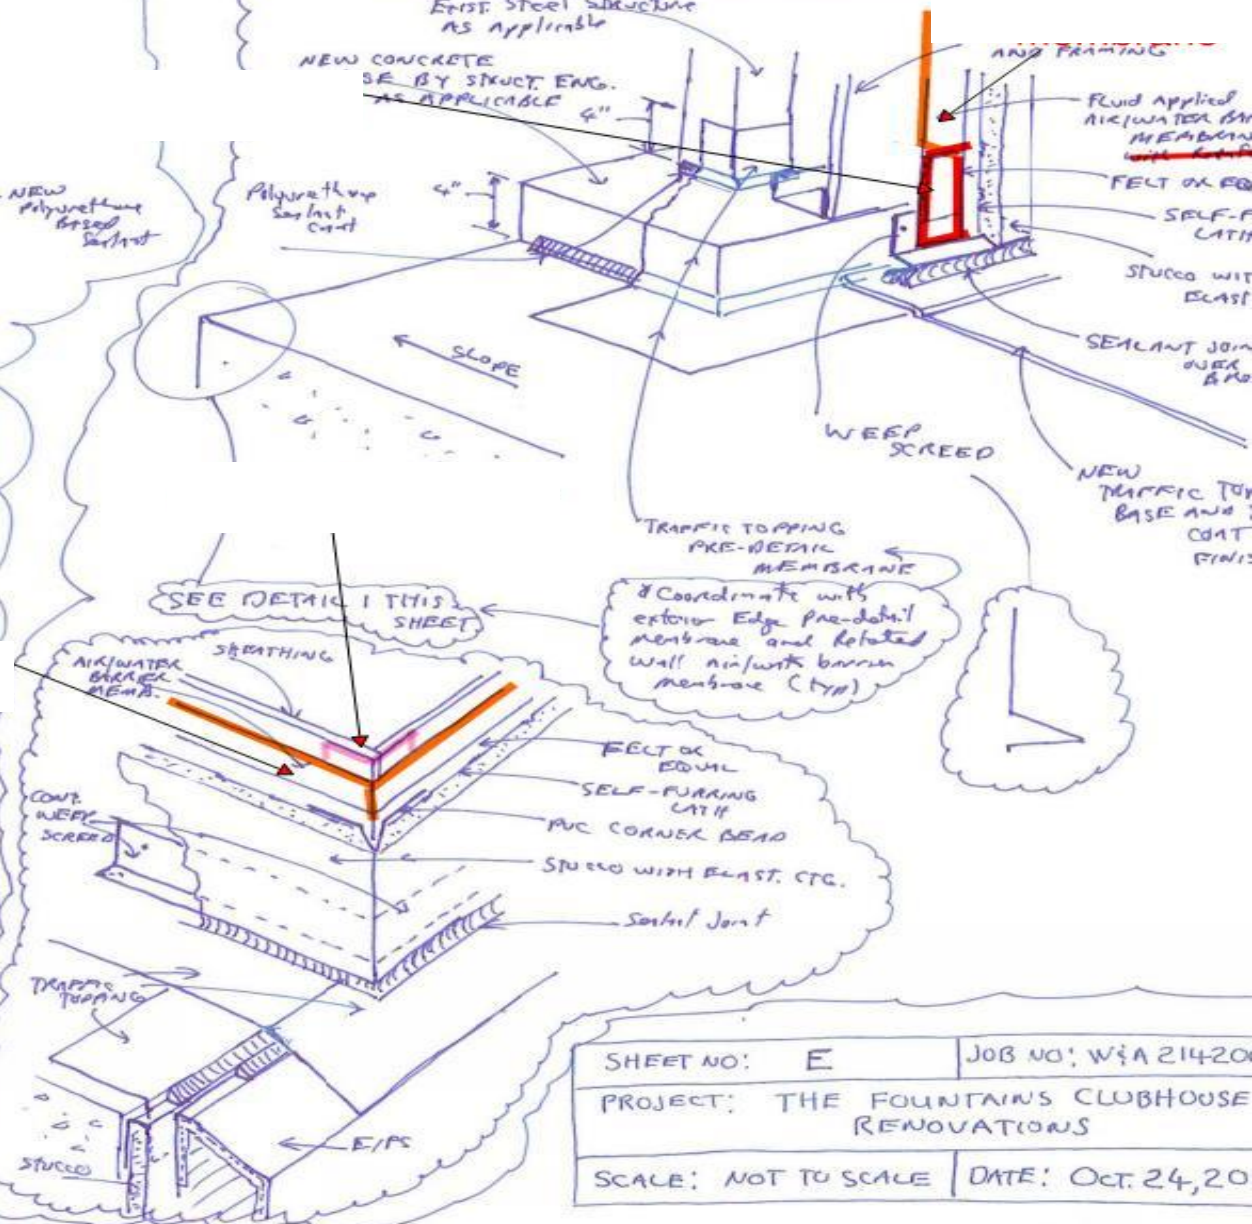 EXIST. STEEL STRUCTURE
AS APPLICABLE
NEW CONCRETE
SE BY STRUCT. ENG.
AS APPLICABLE
4"
4"
AND FRAMING
Fluid Applied
AIR/WATER BA
MEMBRAN
FELT OR EQ
SELF-F
LATH
STUCCO WIT
ELAST
SEALANT JOIN
OVER
NEW
Polyurethane
Based
Sealant
Polyurethane
Sealant
Cant
SLOPE
WEEP
SCREED
NEW
TRAFFIC TOP
BASE AND
COAT
FINIS
TRAFFIC TOPPING
PRE-DETAIL
MEMBRANE
SEE DETAIL 1 THIS
SHEET
* Coordinate with
exterior Edge Pre-detail
membrane and Rotated
wall air/water barrier
membrane (typ)
AIR/WATER
BARRIER
MEMB.
SHEATHING
FELT OR
EQUAL
SELF-FURRING
LATH
PVC CORNER BEAD
STUCCO WITH ELAST. CTG.
Sealant Joint
CONT.
WEEP
SCREED
TRAFFIC
TOPPING
STUCCO
E/FS
SHEET NO: E
JOB NO: W&A 21420
PROJECT: THE FOUNTAINS CLUBHOUSE
RENOVATIONS
SCALE: NOT TO SCALE
DATE: OCT. 24, 20